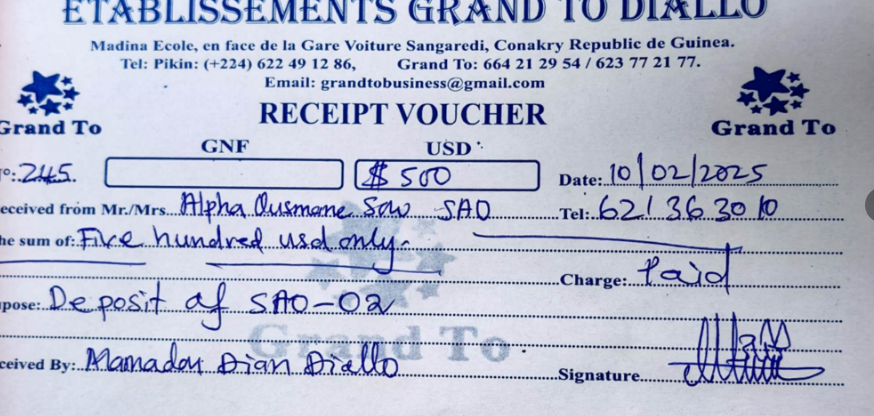 ETABLISSEMENTS GRAND TO DIALLO
Madina Ecole, en face de la Gare Voiture Sangaredi, Conakry Republic de Guinea.
Tel: Pikin: (+224) 622 49 12 86, Grand To: 664 21 29 54 / 623 77 21 77.
Email: grandtobusiness@gmail.com
RECEIPT VOUCHER
Grand To
Grand To
GNF USD
º:.245. $ 500 Date: 10/02/2025
eceived from Mr./Mrs. Alpha Ousmane Sow SAO Tel: 621 36 30 10
he sum of: Five hundred usd only.
Charge: Paid
pose: Deposit of SAO-02
Grand To
ceived By: Mamadou Dian Diallo
Signature